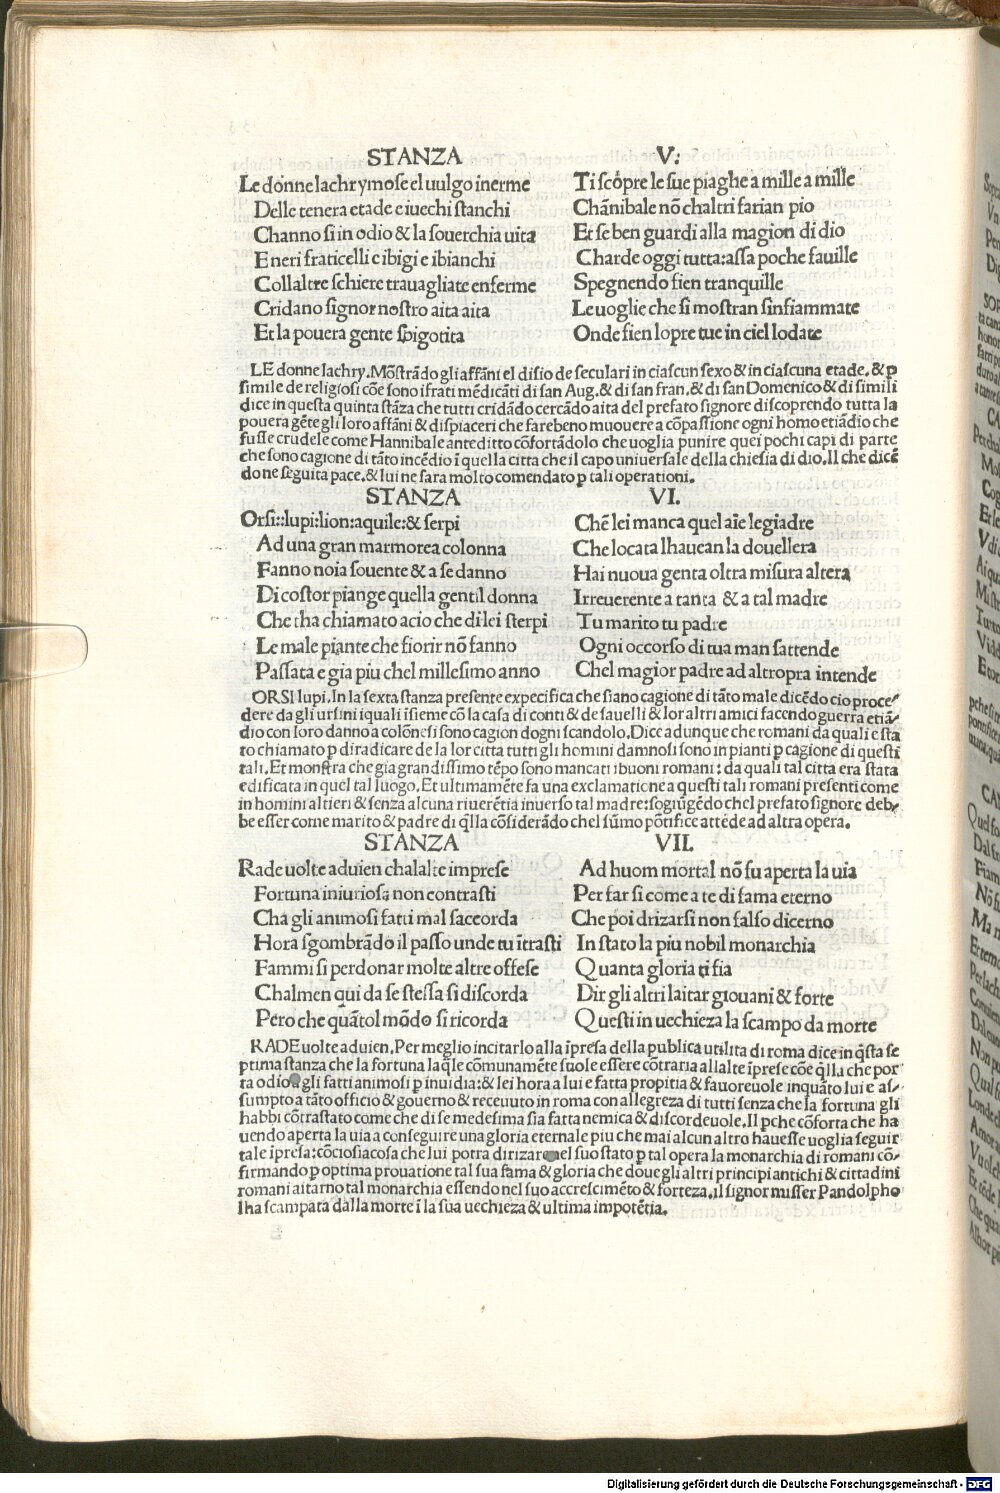 STANZA V:
Le donne lachrymose el uulgo inerme
Delle tenera etade e iuechi stanchi
Channo si in odio & la souerchia uita
E neri fraticelli e ibigi e ibianchi
Collaltre schiere trauagliate enferme
Cridano signor nostro aita aita
Et la pouera gente sbigotita
Ti scõpre le sue piaghe a mille a mille
Chãnibale nõ chaltri farian pio
Et se ben guardi alla magion di dio
Charde oggi tutta:assa poche fauille
Spegnendo fien tranquille
Le uoglie che si mostran sinfiammate
Onde fien lopre tue in ciel lodate
LE donne lachry. Mõstrãdo gli affãni el disio de seculari in ciascun sexo & in ciascuna etade. & p
simile de religiosi cõe sono ifrati mẽdicãti di san Aug. & di san fran. & di san Domenico & di simili
dice in questa quinta stãza che tutti cridãdo cercãdo aita del prefato signore discoprendo tutta la
pouera gẽte gli loro affãni & dispiaceri che farebeno muouere a cõpassione ogni homo etiãdio che
fusse crudele come Hannibale anteditto cõfortãdolo che uoglia punire quei pochi capi di parte
che sono cagione di tãto incẽdio ĩ quella citta che il capo uniuersale della chiesia di dio. Il che dicẽ
do ne seguita pace. & lui ne sara molto comendato p tali operationi.
STANZA VI.
Orsi::lupi:lion:aquile:& serpi
Ad una gran marmorea colonna
Fanno noia souente & a se danno
Di costor piange quella gentil donna
Che tha chiamato acio che di lei sterpi
Le male piante che fiorir nõ fanno
Passata e gia piu chel millesimo anno
Chẽ lei manca quel aĩe legiadre
Che locata lhauean la douellera
Hai nuoua genta oltra misura altera
Irreuerente a tanta & a tal madre
Tu marito tu padre
Ogni occorso di tua man sattende
Chel magior padre ad altropra intende
ORSI lupi. In la sexta stanza presente expecifica che siano cagione di tãto male dicẽdo cio proce-
dere da gli ursini iquali ĩsieme cõ la casa di conti & de sauelli & lor altri amici facendo guerra etiã-
dio con loro danno a colõnesi sono cagion dogni scandolo. Dice adunque che romani da quali e sta
to chiamato p diradicare de la lor citta tutti gli homini damnosi sono in pianti p cagione di questi
tali. Et monstra che gia grandissimo tẽpo sono mancati ibuoni romani: da quali tal citta era stata
edificata in quel tal luogo. Et ultimamẽte fa una exclamatione a questi tali romani presenti come
in homini altieri & senza alcuna riuerẽtia inuerso tal madre: sogiũgẽdo chel prefato signore deb-
be esser come marito & padre di q̃lla cõsiderãdo chel sũmo põtifice attẽde ad altra opera.
STANZA VII.
Rade uolte aduien chalalte imprese
Fortuna iniuriosa non contrasti
Cha gli animosi fatti mal saccorda
Hora sgombrãdo il passo unde tu ĩtrasti
Fammi si perdonar molte altre offese
Chalmen qui da se stessa si discorda
Pero che quãtol mõdo si ricorda
Ad huom mortal nõ fu aperta la uia
Per far si come a te di fama eterno
Che poi drizarsi non falso dicerno
In stato la piu nobil monarchia
Quanta gloria ti fia
Dir gli altri laitar giouani & forte
Questi in uechieza la scampo da morte
RADE uolte aduien. Per meglio incitarlo alla ĩpresa della publica utilita di roma dice in q̃sta se
ptima stanza che la fortuna laq̃le cõmunamẽte suole essere cõtraria allalte ĩprese cõe q̃lla che por
ta odio gli fatti animosi p inuidia: & lei hora a lui e fatta propitia & fauoreuole inquãto lui e as-
sumpto a tãto officio & gouerno & receuuto in roma con allegreza di tutti senza che la fortuna gli
habbi cõtrastato come che di se medesima sia fatta nemica & discordeuole. Il pche cõforta che ha
uendo aperta la uia a conseguire una gloria eternale piu che mai alcun altro hauesse uoglia seguir
tale ĩpresa: cõciosiacosa che lui potra dirizare nel suo stato p tal opera la monarchia di romani cõ-
firmando p optima prouatione tal sua fama & gloria che doue gli altri principi antichi & cittadini
romani aitarno tal monarchia essendo nel suo accrescimẽto & forteza. il signor misser Pandolpho
lha scampata dalla morte ĩ la sua uechieza & ultima impotẽtia.
Digitalisierung gefördert durch die Deutsche Forschungsgemeinschaft - DFG